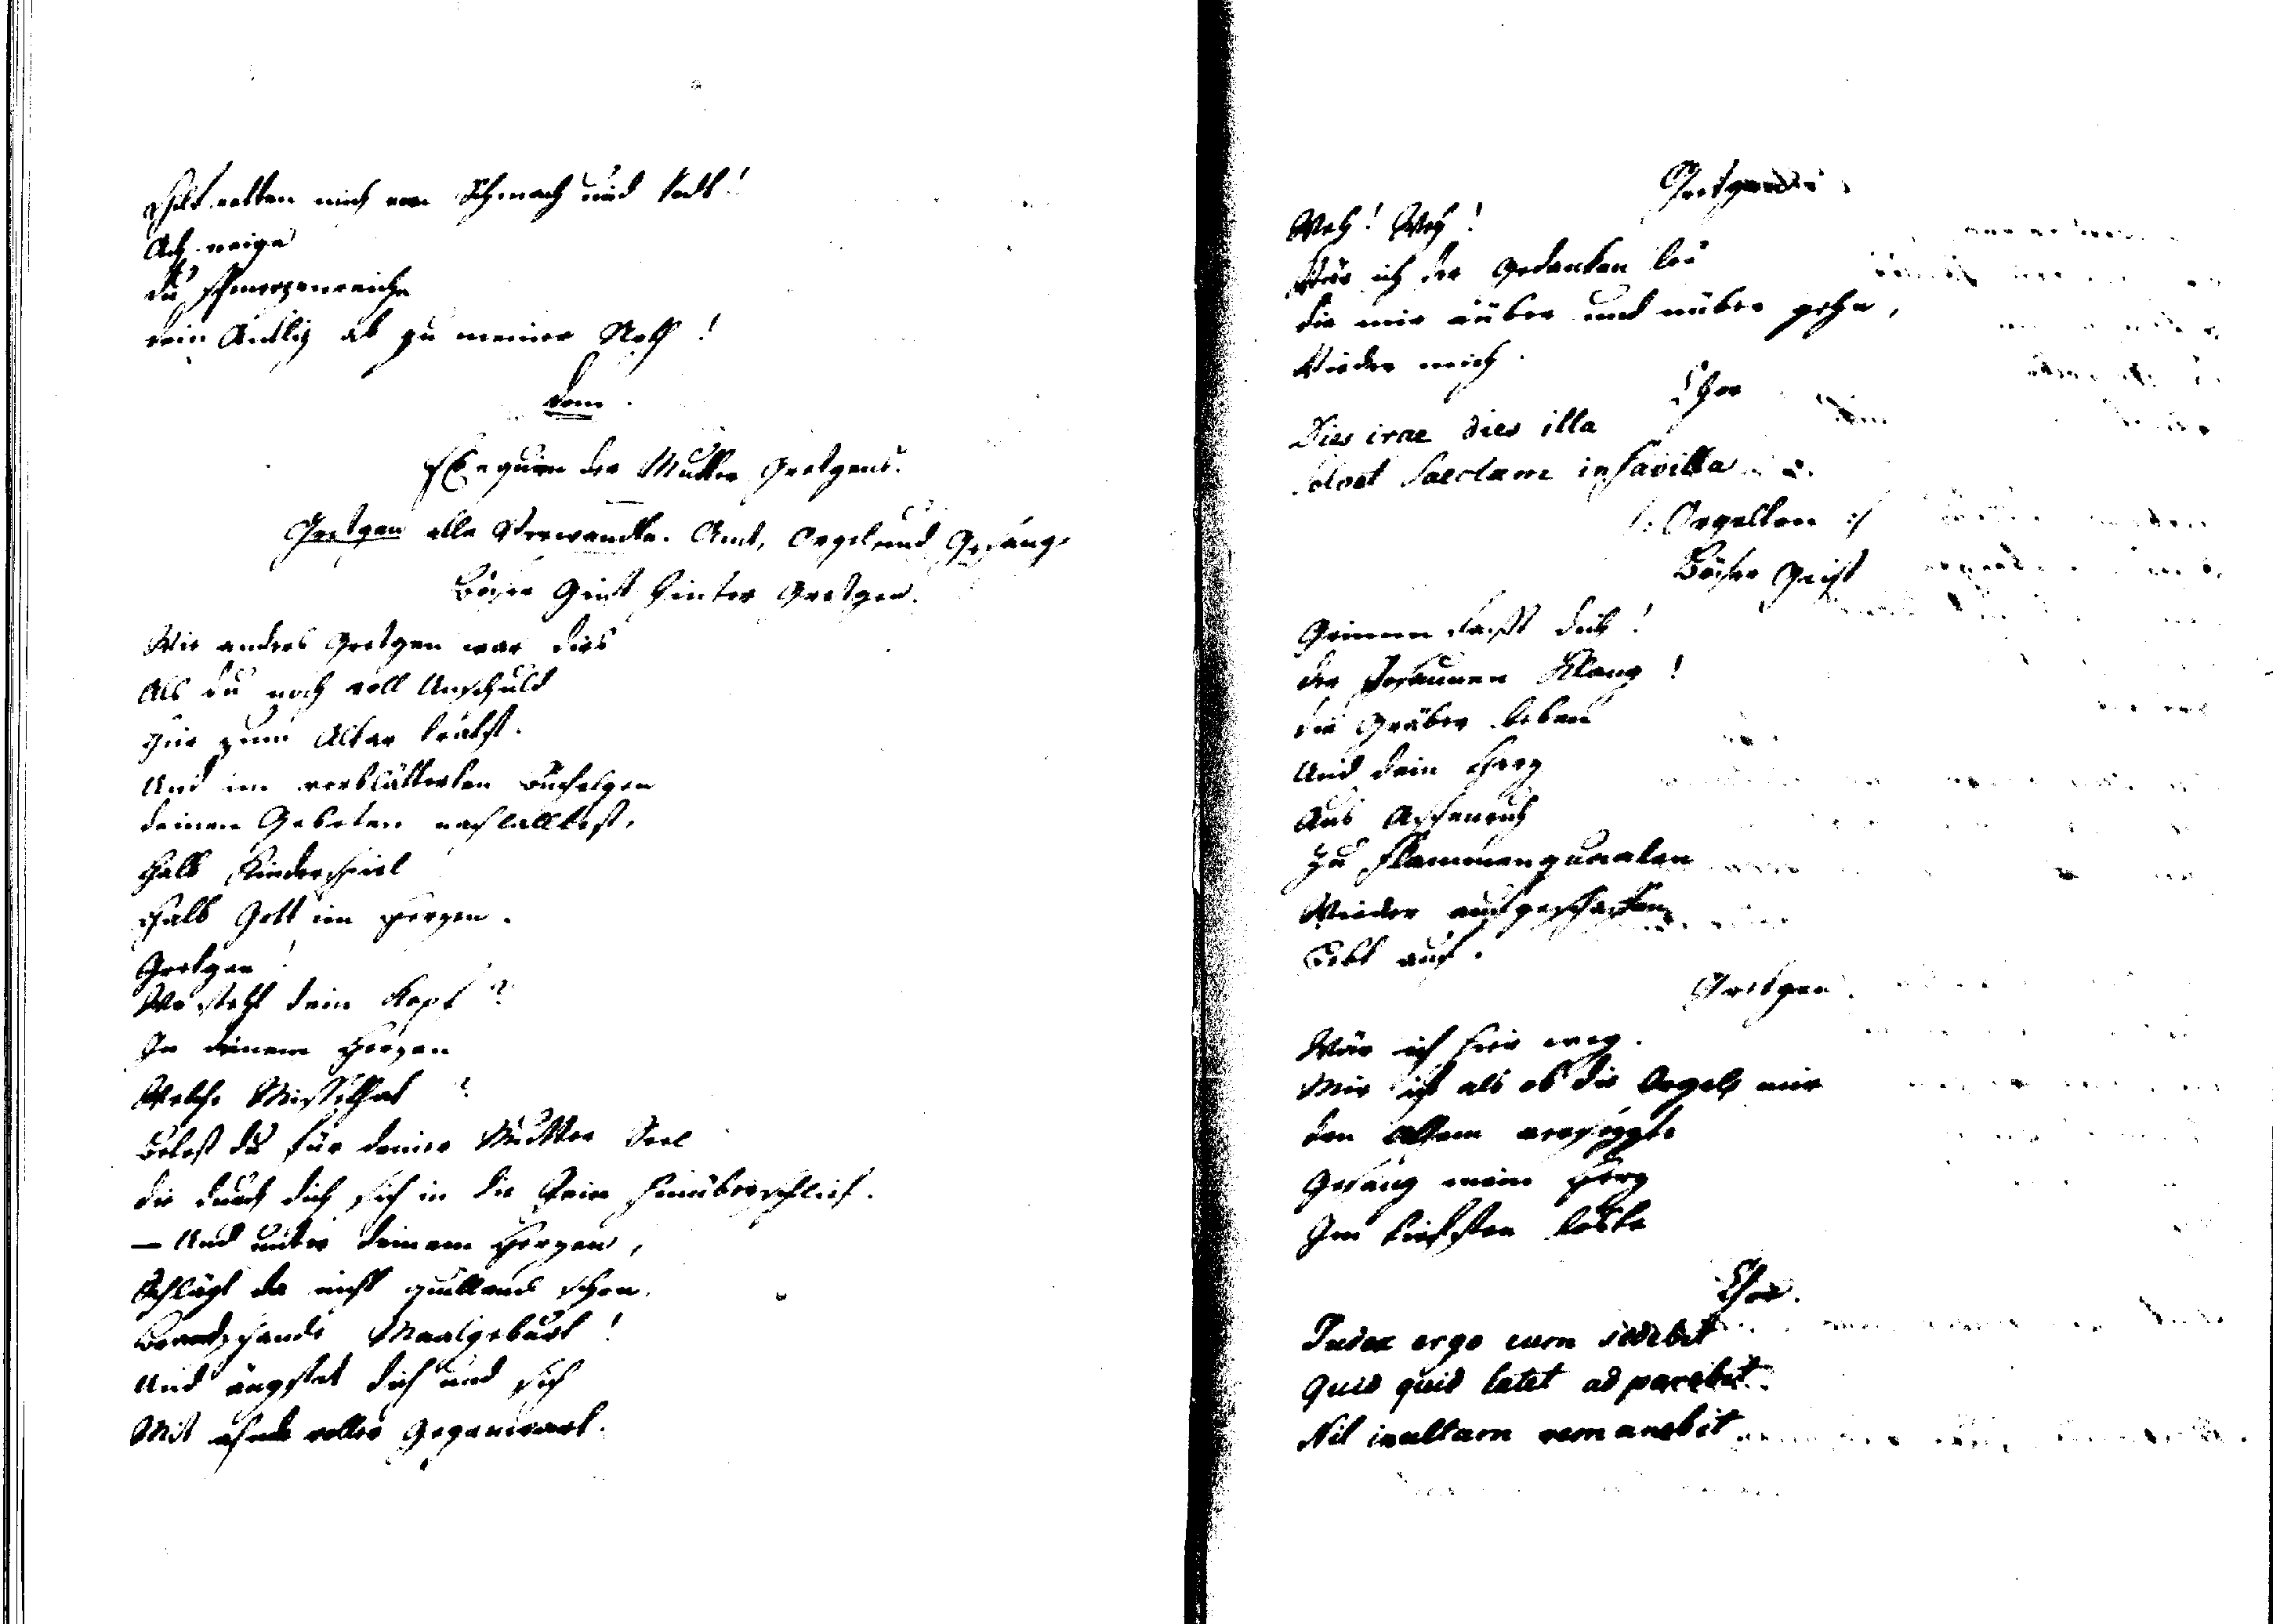 Hilf retten mich von Schmach und Todt!
Ach neige
du schmerzenreiche
dein Antliz ab zu meiner Noth!
Dom.
Exequien der Mutter Gretgens.
Gretgen alle Verwandte. Amt, Orgel und Gesang.
Böser Geist hinter Gretgen.
Wie anders Gretgen war dirs
Als du noch voll Unschuld
Hier zum Altar tratst.
Und im verblätterten Buchelgen
deinen Gebeten nachlalltest,
Halb Kinderspiel
Halb Gott im Herzen.
Gretgen!
Wo steht dein Kopf?
In deinem Herzen
Welche Missethat?
Betest du für deiner Mutter Seel
die durch dich sich in die Pein hinüberschlief.
— Und unter deinem Herzen,
Schlägt da nicht quillend schon,
Brandschande Maalgeburt!
Und ängstet dich und sich
Mit ahnde voller Gegenwart.
Gretgen
Weh! Weh!
Wär ich der Gedancken los
die mir rüber und nüber gehn,
Wieder mich.
Chor
Dies irae dies illa
Solvet Saeclum in favilla.
/: Orgelton :/
Böser Geist
Grimm fasst dich!
der Posaunen Klang!
die Gräber beben
Und dein Herz
Aus Aschenruh
Zu Flammenquaalen
Wieder aufgeschaffen
Bebt auf.
Gretgen.
Wär ich hier weg.
Mir ist als ob die Orgel mir
den Athem versezte
Gesang mein Herz
Im tiefsten lösste
Chor.
Judex ergo cum sedebit
Quid quid latet ad parebit.
Nil inultum remanebit.